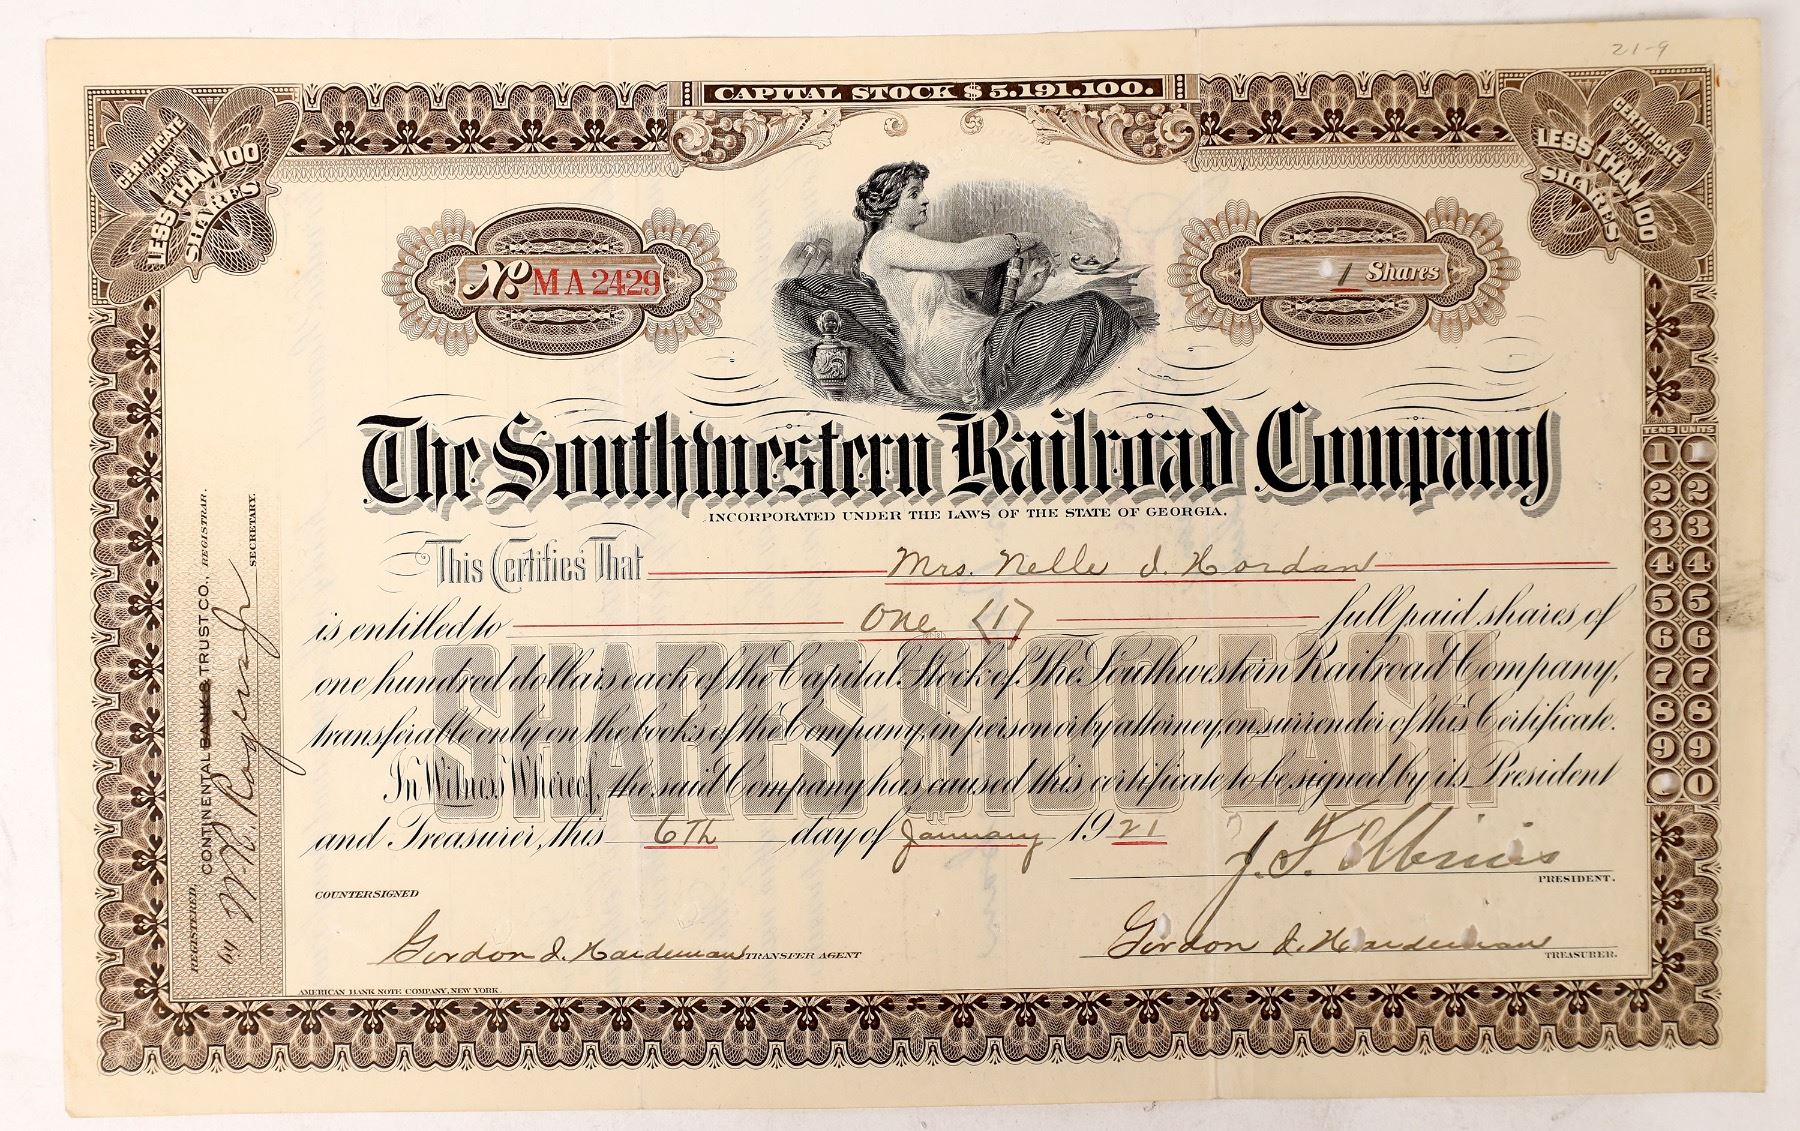 21-9
CAPITAL STOCK $5,191,100.
CERTIFICATE
FOR
LESS THAN 100
SHARES
CERTIFICATE
FOR
LESS THAN 100
SHARES
No. MA2429
1 Shares
The Southwestern Railroad Company
INCORPORATED UNDER THE LAWS OF THE STATE OF GEORGIA.
This Certifies That Mrs. Nelle
is entitled to One (1) full paid shares of
one hundred dollars each of the Capital Stock of The Southwestern Railroad Company,
transferable only on the books of the Company, in person or by attorney, on surrender of this Certificate.
In Witness Whereof, the said Company has caused this certificate to be signed by its President
and Treasurer, this 6th day of January 1921
SHARES $100 EACH
J. F.
PRESIDENT.
COUNTERSIGNED
Gordon J. Hardeman TRANSFER AGENT
Gordon J. Hardeman
TREASURER.
AMERICAN BANK NOTE COMPANY, NEW YORK.
REGISTERED,
CONTINENTAL BANK & TRUST CO., REGISTRAR.
by W. R. Rogers Jr
SECRETARY.
TENS UNITS
1 1
2 2
3 3
4 4
5 5
6 6
7 7
8 8
9 9
0